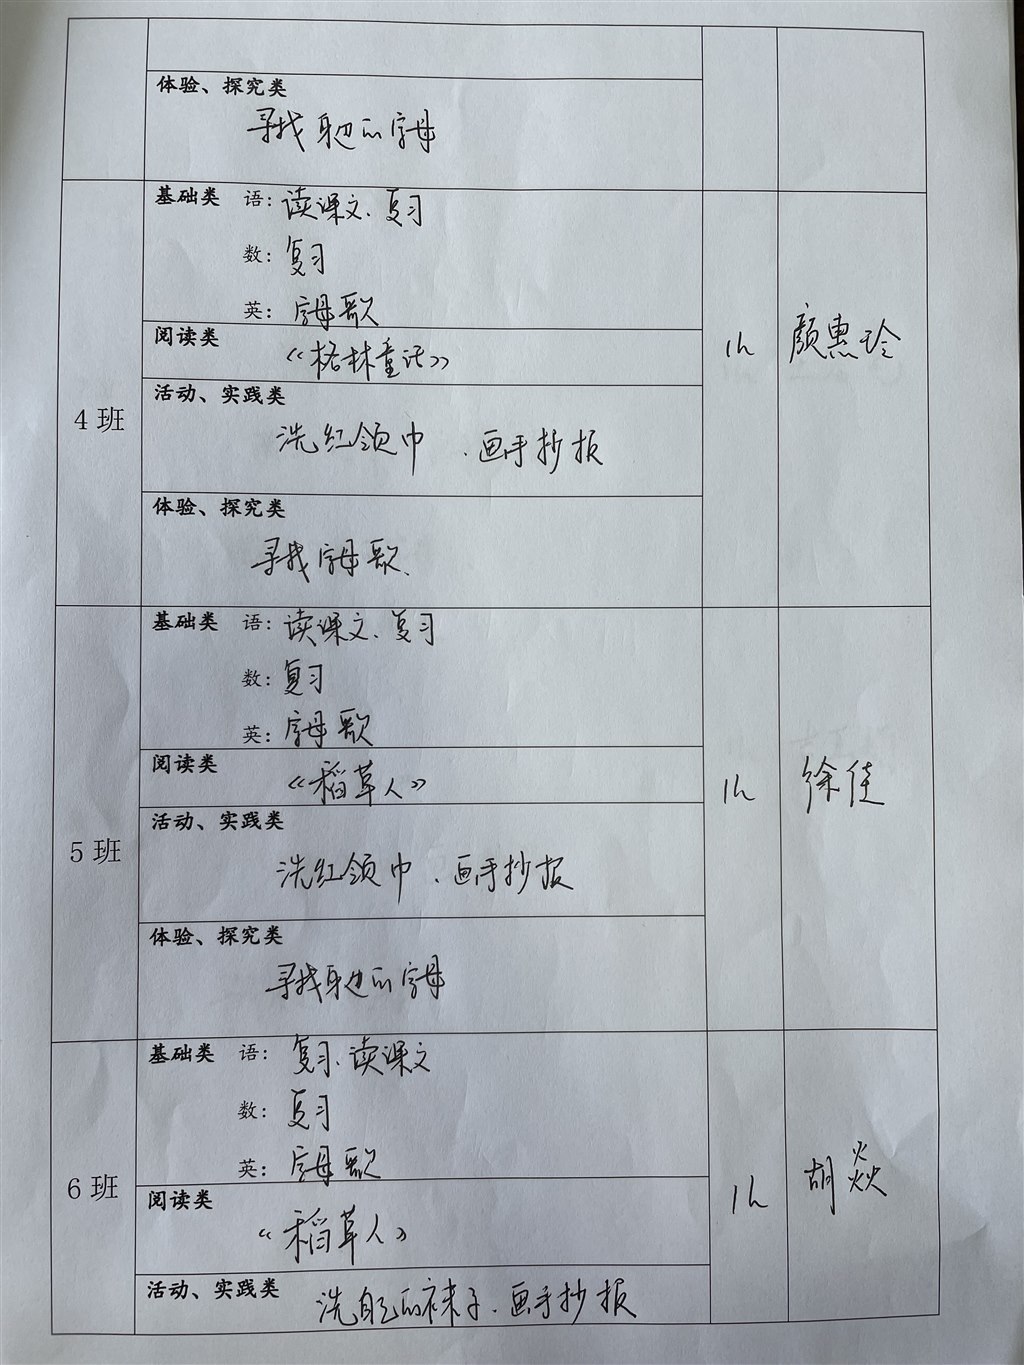 体验、探究类
寻找身边的字母
4班
基础类 语：读课文、复习
数：复习
英：字母歌
阅读类
《格林童话》
活动、实践类
洗红领巾、画手抄报
体验、探究类
寻找字母歌、
1h
颜惠玲
5班
基础类 语：读课文、复习
数：复习
英：字母歌
阅读类
《稻草人》
活动、实践类
洗红领巾、画手抄报
体验、探究类
寻找身边的字母
1h
徐佳
6班
基础类 语：复习、读课文
数：复习
英：字母歌
阅读类
《稻草人》
活动、实践类
洗自己的袜子、画手抄报
1h
胡焱